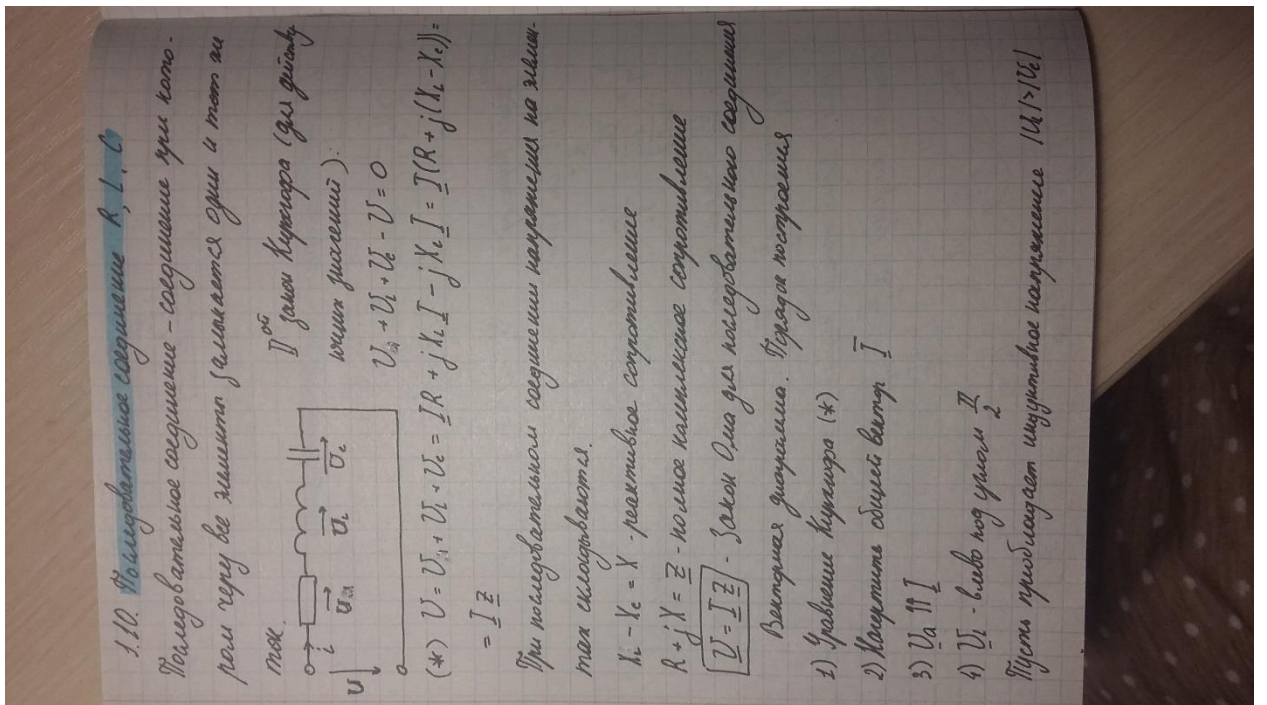 1.10. Последовательное соединение R, L, C
Последовательное соединение - соединение при кото-
ром через все элементы замыкается один и тот же
ток.
i
U
U̅а
U̅L
U̅c
IIой закон Кирхгофа (для действу
ющих значений):
Uа + UL + Uc - U = 0
(*) U = Uа + UL + Uc = I̲R + jXL I̲ - jXc I̲ = I̲(R + j(XL - Xc)) =
= I̲ Z̲
При последовательном соединении напряжения на элемен-
тах складываются.
XL - Xc = X - реактивное сопротивление
R + jX = Z̲ - полное комплексное сопротивление
U̲ = I̲ Z̲ - Закон Ома для последовательного соединения
Векторная диаграмма. Порядок построения
1) Уравнение Кирхгофа (*)
2) Начертить общий вектор I̅
3) U̲а ⇈ I̲
4) U̲L - влево под углом π/2
Пусть преобладает индуктивное напряжение |UL|>|Uc|